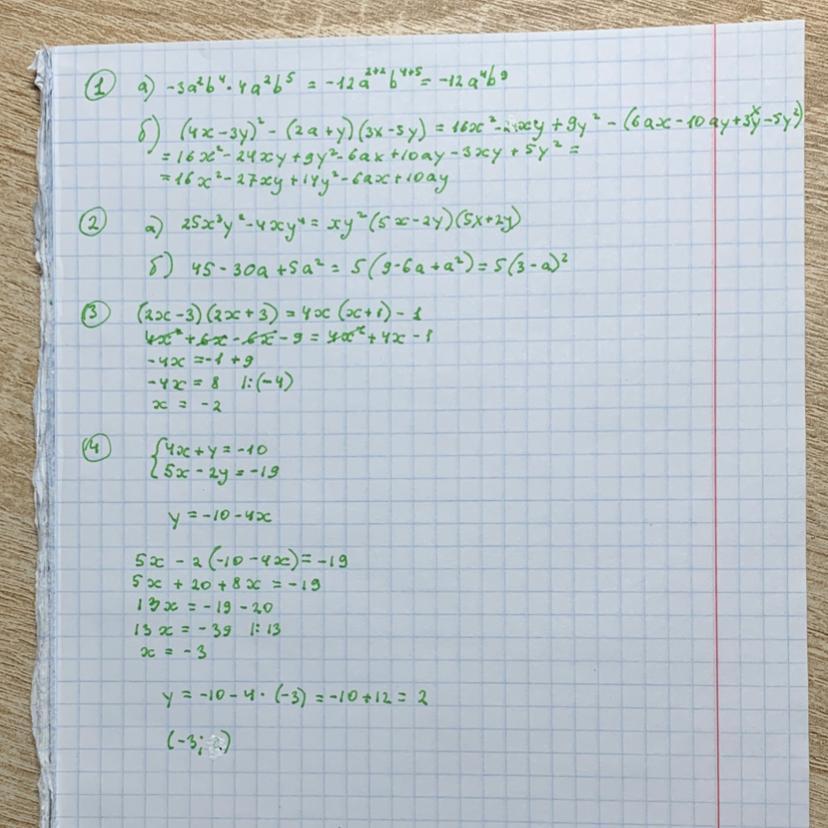 ① а) -3a²b⁴ · 4a²b⁵ = -12a²⁺²b⁴⁺⁵ = -12a⁴b⁹
б) (4x-3y)² - (2a+y)(3x-5y) = 16x²-24xy+9y² - (6ax-10ay+3xy-5y²)
= 16x²-24xy+9y²-6ax+10ay-3xy+5y² =
= 16x²-27xy+14y²-6ax+10ay
② а) 25x³y²-4xy⁴ = xy²(5x-2y)(5x+2y)
б) 45-30a+5a² = 5(9-6a+a²) = 5(3-a)²
③ (2x-3)(2x+3) = 4x(x+1)-1
4x²+6x-6x-9 = 4x²+4x-1
-4x = -1+9
-4x = 8 |:(-4)
x = -2
④ {4x+y = -10
5x-2y = -19
y = -10-4x
5x - 2(-10-4x) = -19
5x + 20 + 8x = -19
13x = -19-20
13x = -39 |:13
x = -3
y = -10-4·(-3) = -10+12 = 2
(-3; )